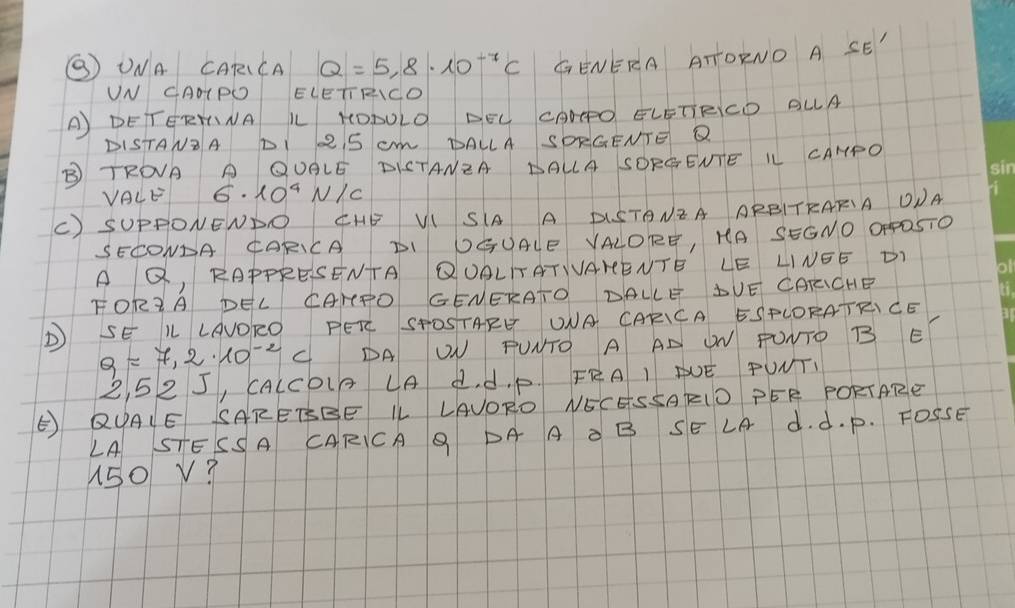 9) UNA CARICA Q = 5,8 · 10⁻⁷ C GENERA ATTORNO A SE'
UN CAMPO ELETTRICO
A) DETERMINA IL MODULO DEL CAMPO ELETTRICO ALLA
DISTANZA DI 2,5 cm DALLA SORGENTE Q
B) TROVA A QUALE DISTANZA DALLA SORGENTE IL CAMPO
VALE 6 · 10⁴ N/C
C) SUPPONENDO CHE VI SIA A DISTANZA ARBITRARIA UNA
SECONDA CARICA DI UGUALE VALORE, MA SEGNO OPPOSTO
A Q, RAPPRESENTA QUALITATIVAMENTE LE LINEE DI
FORZA DEL CAMPO GENERATO DALLE DUE CARICHE
D) SE IL LAVORO PER SPOSTARE UNA CARICA ESPLORATRICE
q = 7,2 · 10⁻² C DA UN PUNTO A AD UN PUNTO B E'
2,52 J, CALCOLA LA d.d.p. FRA I DUE PUNTI
E) QUALE SAREBBE IL LAVORO NECESSARIO PER PORTARE
LA STESSA CARICA q DA A a B SE LA d.d.p. FOSSE
150 V?
sin